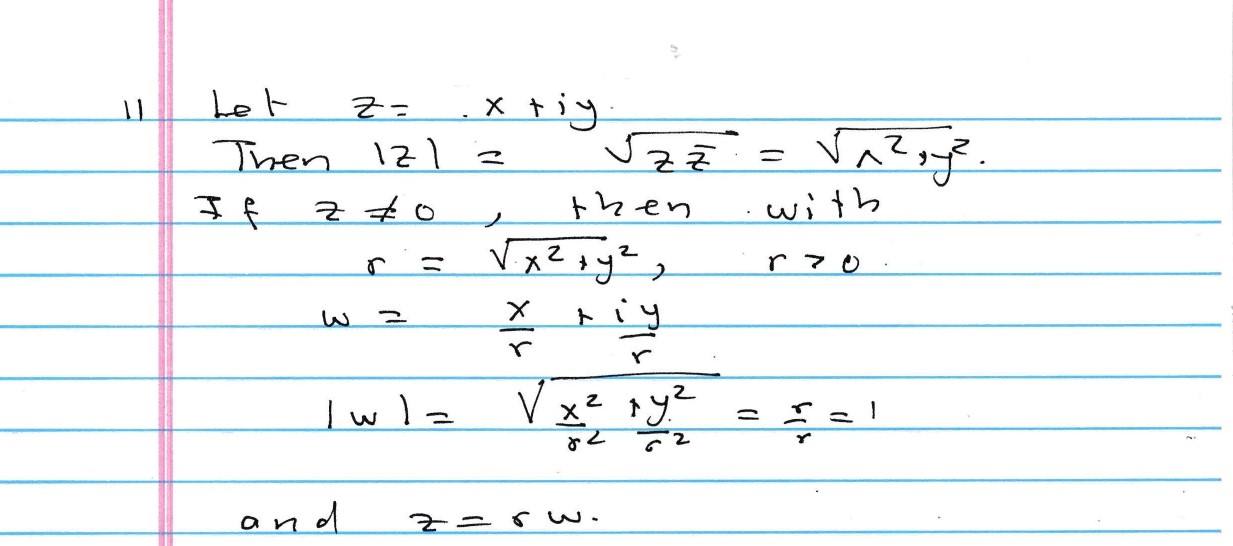 11 Let z = x + iy.
Then |z| = √(z z̄) = √(x² + y²).
If z ≠ 0, then with
r = √(x² + y²), r > 0.
w = x/r + iy/r
|w| = √(x²/r² + y²/r²) = r/r = 1
and z = rw.